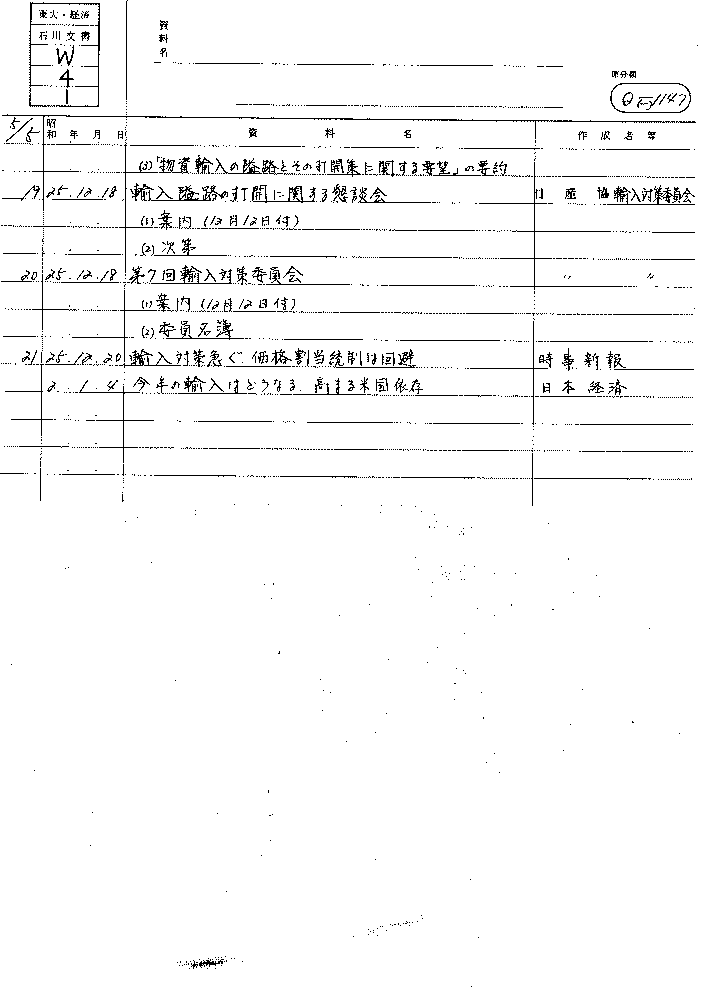 東大・経済
石川文書
W
4
1
資料名
原分類
5/5
昭和 年 月 日 資料名 作成名等
(3)「物資輸入の隘路とその打開策に関する要望」の要約
19 25.12.18 輸入隘路の打開に関する懇談会 日産協輸入対策委員会
(1) 案内 (12月12日付)
(2) 次第
20 25.12.18 第7回輸入対策委員会 〃 〃
(1) 案内 (12月12日付)
(2) 委員名簿
21 25.12.20 輸入対策急ぐ、価格割当統制は回避 時事新報
2. 1. 4 今年の輸入はどうなる、高まる米国依存 日本経済